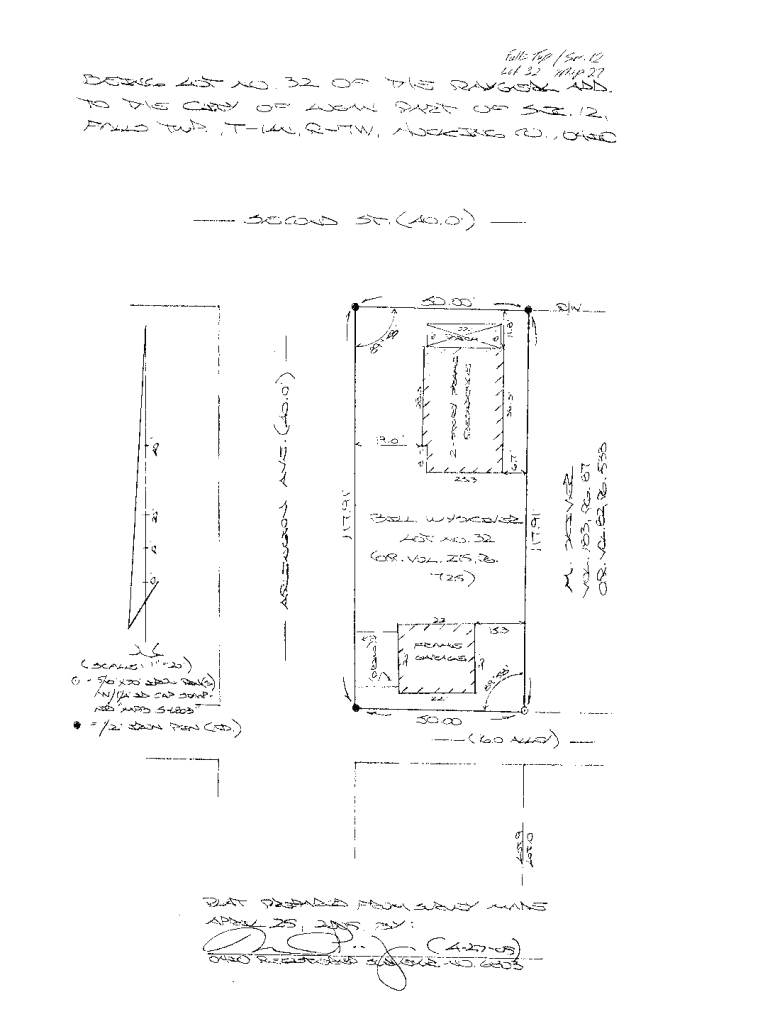 Falls Twp / Sec. 12
Lot 32 Map 27
BEING LOT NO. 32 OF THE ADD.
TO THE CITY OF LOGAN PART OF SEC. 12,
FALLS TWP., T-14N, R-17W, HOCKING CO., OHIO
SECOND ST. (40.0')
50.00'
R/W
11.8'
PORCH
2-STORY FRAME
RESIDENCE
36.3'
19.0'
6.7'
23.3
ARLINGTON AVE. (40.0')
117.91'
117.91'
LOT NO. 32
(OR. VOL. 215, PG.
725)
VOL. 183, PG. 87
OR. VOL. 82, PG. 533
22
15.3
FRAME
GARAGE
22
50.00
(16.0 ALLEY)
(SCALE: 1"=20')
5/8"X30" IRON PIN(S)
W/1 1/4" ID CAP STAMP-
= 1/2" IRON PIN (FD.)
PLAT PREPARED FROM SURVEY MADE
APRIL 25, 2005 BY:
(4-27-05)
OHIO REGISTERED SURVEYOR NO. 6803